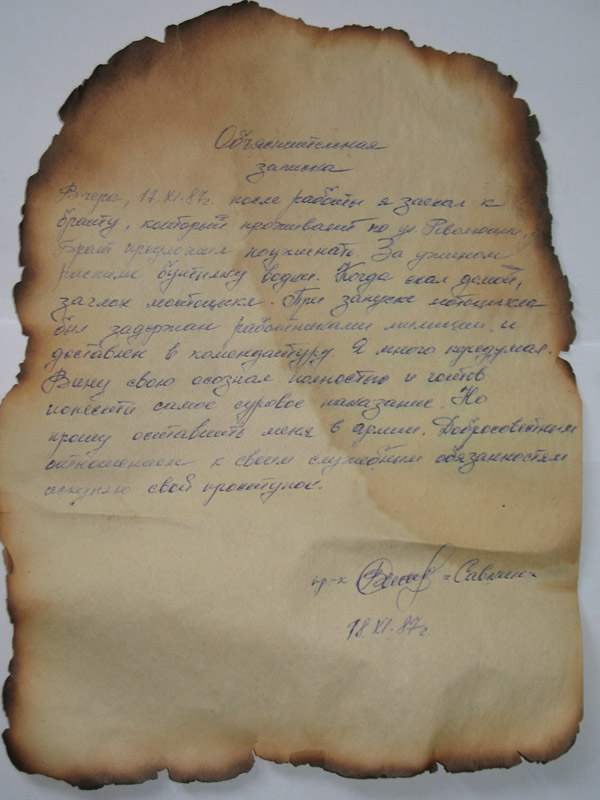 Объяснительная
записка
Вчера, 17.XI.87г. после работы я заехал к
брату, который проживает по ул. Революции,
Брат предложил поужинать. За ужином
распили бутылку водки. Когда ехал домой,
заглох мотоцикл. При запуске мотоцикла
был задержан работниками милиции и
доставлен в комендатуру. Я много передумал.
Вину свою осознал полностью и готов
понести самое суровое наказание. Но
прошу оставить меня в армии. Добросовестным
отношением к своим служебным обязанностям
искуплю свой проступок.
пр-к = Савкин =
18.XI.87г